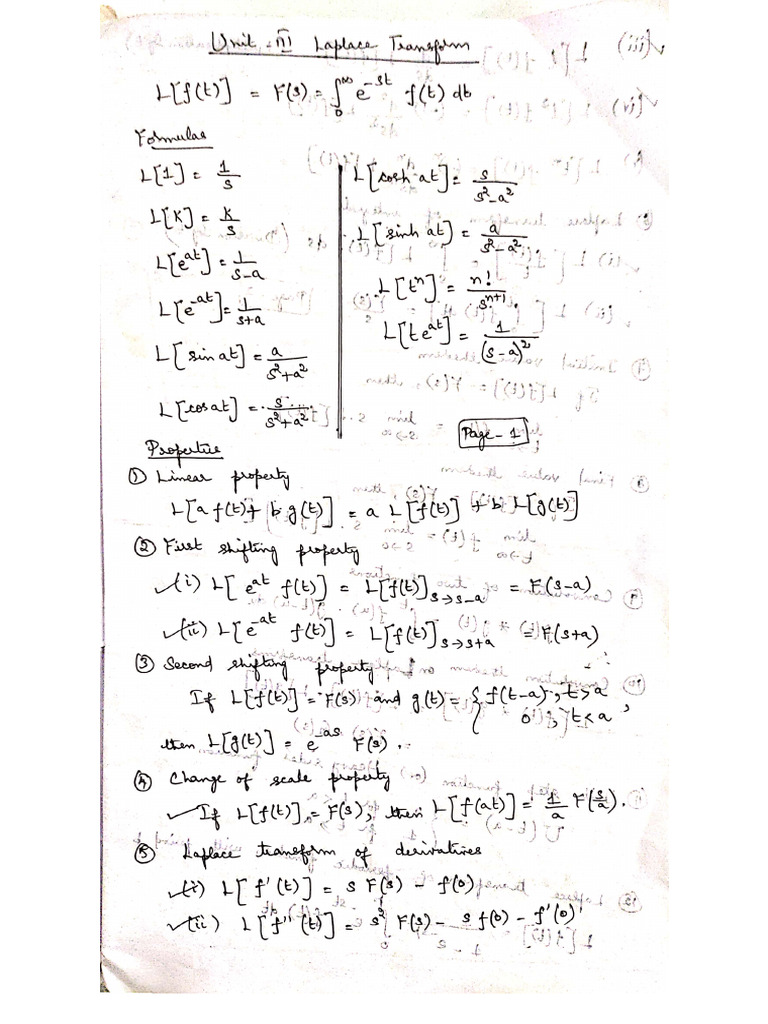 Unit - III Laplace Transform
L[f(t)] = F(s) = ∫₀^∞ e^{-st} f(t) dt
Formulas
L[1] = 1/s
L[K] = K/s
L[e^{at}] = 1/(s-a)
L[e^{-at}] = 1/(s+a)
L[sin at] = a/(s²+a²)
L[cos at] = s/(s²+a²)
L[cosh at] = s/(s²-a²)
L[sinh at] = a/(s²-a²)
L[t^n] = n!/s^{n+1}
L[te^{at}] = 1/(s-a)²
Page - 1
Properties
① Linear property
L[a f(t) + b g(t)] = a L[f(t)] + b L[g(t)]
② First shifting property
✓(i) L[e^{at} f(t)] = L[f(t)]_{s→s-a} = F(s-a)
✓(ii) L[e^{-at} f(t)] = L[f(t)]_{s→s+a} = F(s+a)
③ Second shifting property
If L[f(t)] = F(s) and g(t) = { f(t-a), t>a
0, t<a ,
then L[g(t)] = e^{-as} F(s).
④ Change of scale property
✓If L[f(t)] = F(s), then L[f(at)] = 1/a F(s/a).
⑤ Laplace transform of derivatives
✓(i) L[f'(t)] = s F(s) - f(0)
✓(ii) L[f''(t)] = s² F(s) - s f(0) - f'(0)